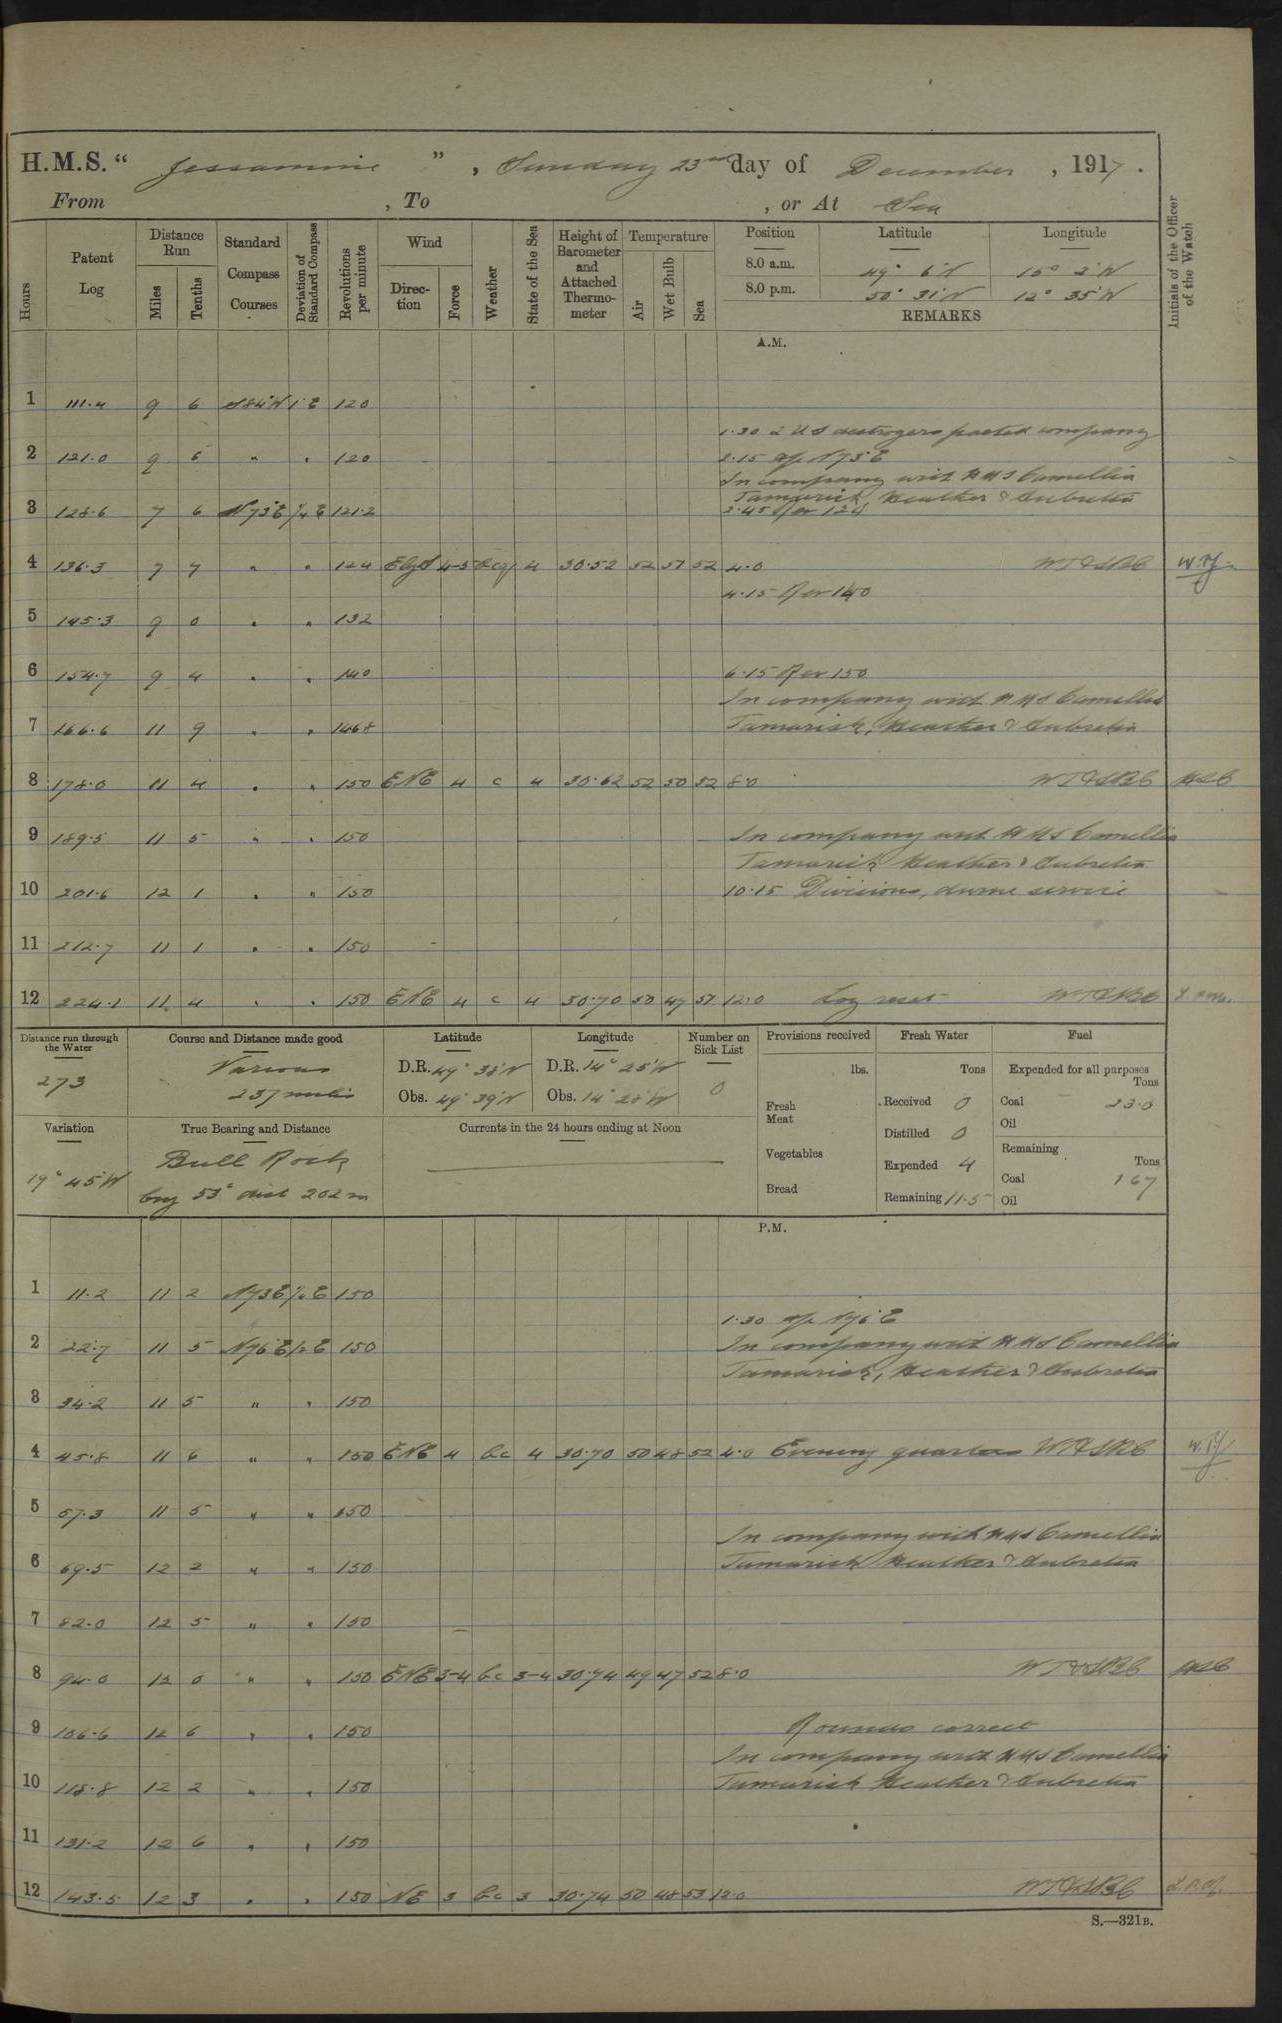 H.M.S. “ Jessamine ” , Sunday 23rd day of December , 1917 .
From , To , or At Sea
Hours
Patent Log
Distance Run
Miles
Tenths
Standard Compass Courses
Deviation of Standard Compass
Revolutions per minute
Wind
Direction
Force
Weather
State of the Sea
Height of Barometer and Attached Thermometer
Temperature
Air
Wet Bulb
Sea
Position Latitude Longitude
8.0 a.m. 49° 6'N 15° 2'W
8.0 p.m. 50° 31'N 12° 35'W
REMARKS
Initials of the Officer of the Watch
A.M.
1 111.4 9 6 S84°W 1°E 120
1.30 2 US destroyers parted company
2 121.0 9 6 " " 120 2.15 a/c N73°E
In company with HMS Camellia
Tamarisk, Heather & Aubretia
3 128.6 7 6 N73°E 121.2 2.45 Rev 124
4 136.3 7 7 " " 124 4-5 4 30.52 52 51 52 4.0 WT&SBC
4.15 Rev 140
5 145.3 9 0 " " 132
6 154.7 9 4 " " 140 6.15 Rev 150
In company with HMS Camellia
7 166.6 11 9 " " 146.8 Tamarisk, Heather & Aubretia
8 178.0 11 4 " " 150 ENE 4 c 4 30.62 52 50 52 8.0 WT&SBC
9 189.5 11 5 " " 150 In company with HMS Camellia
Tamarisk Heather & Aubretia
10 201.6 12 1 " " 150 10.15 Divisions, divine service
11 212.7 11 1 " " 150
12 224.1 11 4 " " 150 ENE 4 c 4 30.70 50 47 51 12.0 Log reset WT&SBC
Distance run through the Water
273
Course and Distance made good
Various
257 miles
Latitude
D.R. 49° 38'N
Obs. 49° 39'N
Longitude
D.R. 14° 25'W
Obs. 14° 28'W
Number on Sick List
0
Variation
19° 45'W
True Bearing and Distance
Bull Rock
brg 53° dist 202 m
Currents in the 24 hours ending at Noon
Provisions received
lbs.
Fresh Meat
Vegetables
Bread
Fresh Water
Tons
Received 0
Distilled 0
Expended 4
Remaining 11.5
Fuel
Expended for all purposes
Tons
Coal 23.0
Oil
Remaining
Tons
Coal 167
Oil
P.M.
1 11.2 11 2 N73E 150
1.30 a/c N76°E
2 22.7 11 5 N76°E 150 In company with HMS Camellia
Tamarisk, Heather & Aubretia
3 34.2 11 5 " " 150
4 45.8 11 6 " " 150 ENE 4 bc 4 30.70 50 48 52 4.0 Evening quarters WT&SBC
5 57.3 11 5 " " 150
In company with HMS Camellia
6 69.5 12 2 " " 150 Tamarisk Heather & Aubretia
7 82.0 12 5 " " 150
8 94.0 12 0 " " 150 ENE 3-4 bc 3-4 30.74 49 47 52 8.0 WT&SBC
9 106.6 12 6 " " 150 Rounds correct
In company with HMS Camellia
10 118.8 12 2 " " 150 Tamarisk Heather & Aubretia
11 131.2 12 6 " " 150
12 143.5 12 3 " " 150 NE 3 bc 3 30.74 50 48 53 12.0 WT&SBC
S.—321B.